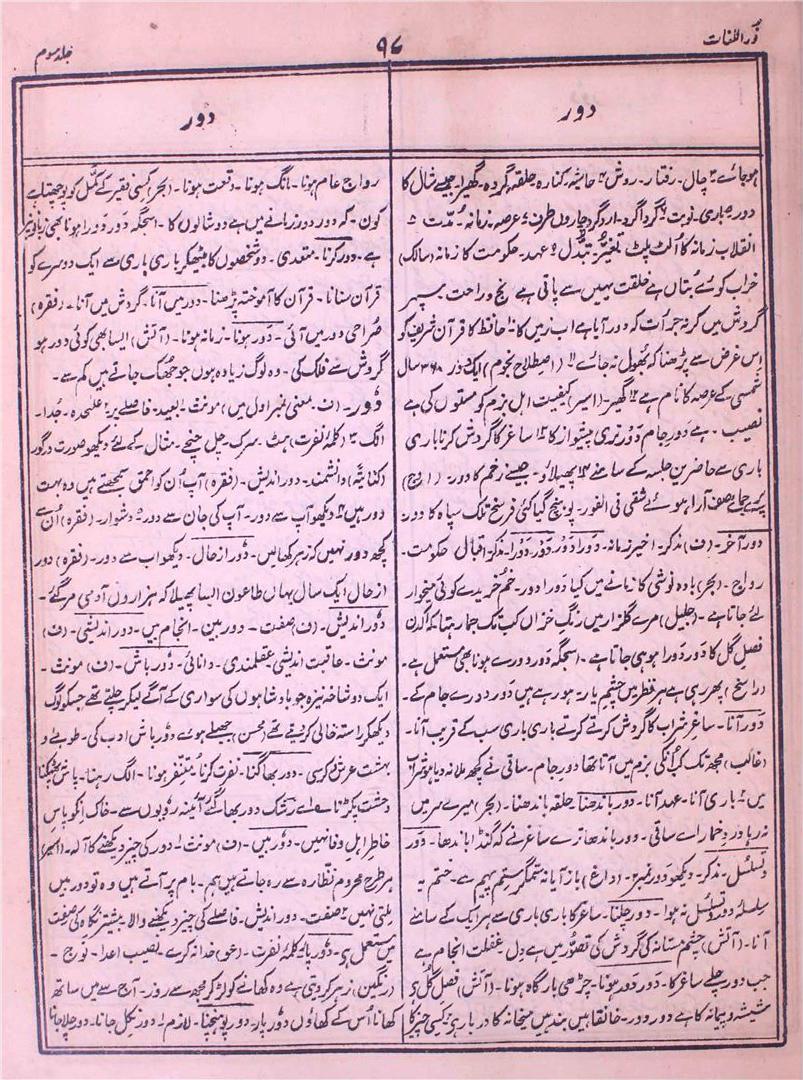 نور اللغات
۹۷
جلد سوم
دور
دور
ہو جائے ۳ چال۔ رفتار۔ روش ۴ حاشیہ۔ کنارہ۔ حلقہ۔ گردہ۔ گھیرا۔ جیسے شال کا
دور ۵ باری۔ نوبت ۶ گرداگرد۔ اردگرد۔ چاروں طرف ۷ عرصہ۔ زمانہ۔ مدّت ۸
انقلاب زمانہ کا اُلٹ پلٹ۔ تغیّر۔ تبدّل ۹ عہد۔ حکومت کا زمانہ (سالک)
خراب کوئے بُتاں ہے خلقت یہیں سے پاتی ہے رنج و راحت سپہر
گردش میں گر نہ جرأت کہ دور آیا ہے اب زمیں کا ۱۰ حافظ کا قرآن شریف کو
اِس غرض سے پڑھنا کہ بھول نہ جائے ۱۱ (اصطلاح نجوم) ایک دور ۳۶۰ سال
شمسی کے عرصہ کا نام ہے ۱۲ گھیر۔ (اسیر) کیفیت اہل بزم کو مستوں کی ہے
نصیب۔ ہے دورِ جام دَور تری پشواز کا ۱۳ ساغر کا گردش کرنا باری
باری سے حاضرین جلسہ کے سامنے ۱۴ پھیلاؤ۔ جیسے زخم کا دور۔ (اوج)
پرے جما کے صف آرا ہوئے شقی فی الفور۔ پہنچ گیا کئی فرسخ تلک سپاہ کا دور۔
دورِ آخر۔ (ف) مذکر۔ اخیر زمانہ۔ دَور دَورا۔ دَور دَورہ۔ مذکر۔ اقبال حکومت۔
رواج۔ (بحر) بادہ نوشی کا زمانے میں کیا دورا دور۔ خُم خریدے کوئی میخوار
لئے جاتا ہے۔ (جلیل) مرے گلزار میں رنگِ خزاں کب تک جما رہتا کہ اک دن
فصل گل کا دَور دَورا ہو ہی جاتا ہے۔ اسجگہ دَور دورے ہونا بھی مستعمل ہے۔
(راسخ) پھر رہی ہے ہر نظر میں چشم یار۔ ہو رہے ہیں دَور دورے جام کے۔
دَور آنا۔ ساغر شراب کا گردش کرتے کرتے باری باری سب کے قریب آنا۔
(غالب) مجھ تک کب اُنکی بزم میں آتا تھا دور جام۔ ساقی نے کچھ ملا نہ دیا ہو شراب
میں ۲ باری آنا۔ عہد آنا۔ دور باندھنا۔ حلقہ باندھنا۔ (بحر) میرے سر میں
نہ رہا دورِ خمار اے ساقی۔ دور باندھا ترے ساغر نے کہ گنڈا باندھا۔ دَور
و تسلسل۔ مذکر۔ دیکھو دَور نمبر ۲۔ (داغ) باز آیا نہ ستمگر ستم پیہم سے۔ ختم یہ
سلسلہ دور و تسلسل نہ ہوا۔ دور چلنا۔ ساغر کا باری باری سے ہر ایک کے سامنے
آنا۔ (آتش) چشم مستانہ کی گردش کی تصوّر میں ہے دل۔ غفلت انجام ہے
جب دور چلے ساغر کا۔ دَور دَور ہونا۔ چڑھی بارگاہ ہونا۔ (آتش) فصل گل ہے
شیشہ و پیمانہ کا ہے دور دور۔ خانقاہیں بند ہیں میخانہ کا دربار ہے ۲ کسی چیز کا
رواج عام ہونا۔ مانگ ہونا۔ وقعت ہونا۔ (بحر) کسی فقیر کے کمّل کو پوچھتا ہے
کون۔ کہ دور دور زمانے میں ہے دوشالوں کا۔ اسجگہ دَور دَورا ہونا بھی زبانوں پر
ہے۔ دَور کرنا۔ متعدی۔ دو شخصوں کا بیٹھکر باری باری سے ایک دوسرے کو
قرآن سنانا۔ قرآن کا آموختہ پڑھنا۔ دور میں آنا۔ گردش میں آنا۔ (فقرہ)
صُراحی دور میں آئی۔ دَور ہونا۔ زمانہ ہونا۔ (آتش) ایسا بھی کوئی دور ہو
گردش سے فلک کی۔ وہ لوگ زیادہ ہوں جو جھک جاتے ہیں کم سے۔
دُور۔ (ف۔ معنی نمبر اول میں) مونث ۱ بعید۔ فاصلے پر ۲ علٰحدہ۔ جُدا۔
الگ ۳ (کلمۂ نفرت) ہٹ۔ سرک۔ چل نخچے۔ مثال کے لئے دیکھو صورت در گور
(کنایتہً) دانشمند۔ دور اندیش۔ (فقرہ) آپ اُن کو احمق سمجھتے ہیں وہ بہت
دور ہیں ۴ دیکھو آپ سے دور۔ آپ کی جان سے دور ۵ دشوار۔ (فقرہ) اُن سے
کچھ دور نہیں کہ زہر کھالیں۔ دُور از حال۔ دیکھو اب سے دور۔ (فقرہ) دور
از حال ایک سال یہاں طاعون ایسا پھیلا کہ ہزاروں آدمی مر گئے۔
دُور اندیش۔ (ف) صفت۔ دور بین۔ انجام بیں۔ دور اندیشی۔ (ف)
مونث۔ عاقبت اندیشی۔ عقلمندی۔ دانائی۔ دُور باش۔ (ف) مونث۔
ایک دو شاخہ نیزہ جو بادشاہوں کی سواری کے آگے لیکر چلتے تھے جسکو لوگ
دیکھکر راستہ خالی کر دیتے تھے (محسن) جھیلے ہوئے دُور باش ادب کی۔ طوبےٰ و
بہشت عرش و کرسی۔ دور بھاگنا۔ نفرت کرنا۔ متنفر ہونا۔ الگ رہنا۔ پاس نہ پھٹکنا
وحشت پکڑنا ہے اے رشک دور بھاگے آئینہ رویوں سے۔ خاک انکو پاسِ
خاطرِ اہلِ وفا نہیں۔ دُور بیں۔ (ف) مونث ۱ دور کی چیز دیکھنے کا آلہ۔ (اسیر)
ہر طرح محروم نظارہ سے رہ جاتے ہیں ہم۔ بام پر آتے ہیں وہ تو دور بیں
ملتی نہیں ۲ صفت۔ دور اندیش۔ فاصلے کی چیز دیکھنے والا۔ بیشتر نگاہ کی صفت
میں مستعمل ہے۔ دُور پار۔ کلمۂ نفرت۔ (عو) خدا نہ کرے۔ نصیب اعدا۔ نوج۔
(رنگین) زہر کر دیتی ہے وہ کھانے کو لڑ کر مجھ سے روز۔ آج سے میں ساتھ
کھانا اُس کے کھاؤں دور پار۔ دور پہونچنا۔ لازم ۱ دور نکل جانا۔ دور چلا جانا